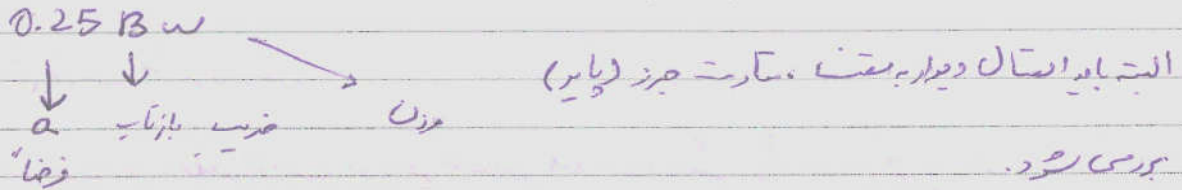 0.25 B w
البته باید اتصال دیوار به سقف ، مقاومت جرز (پایر)
a ضریب بازتاب وزن
فرضاً بررسی شود.